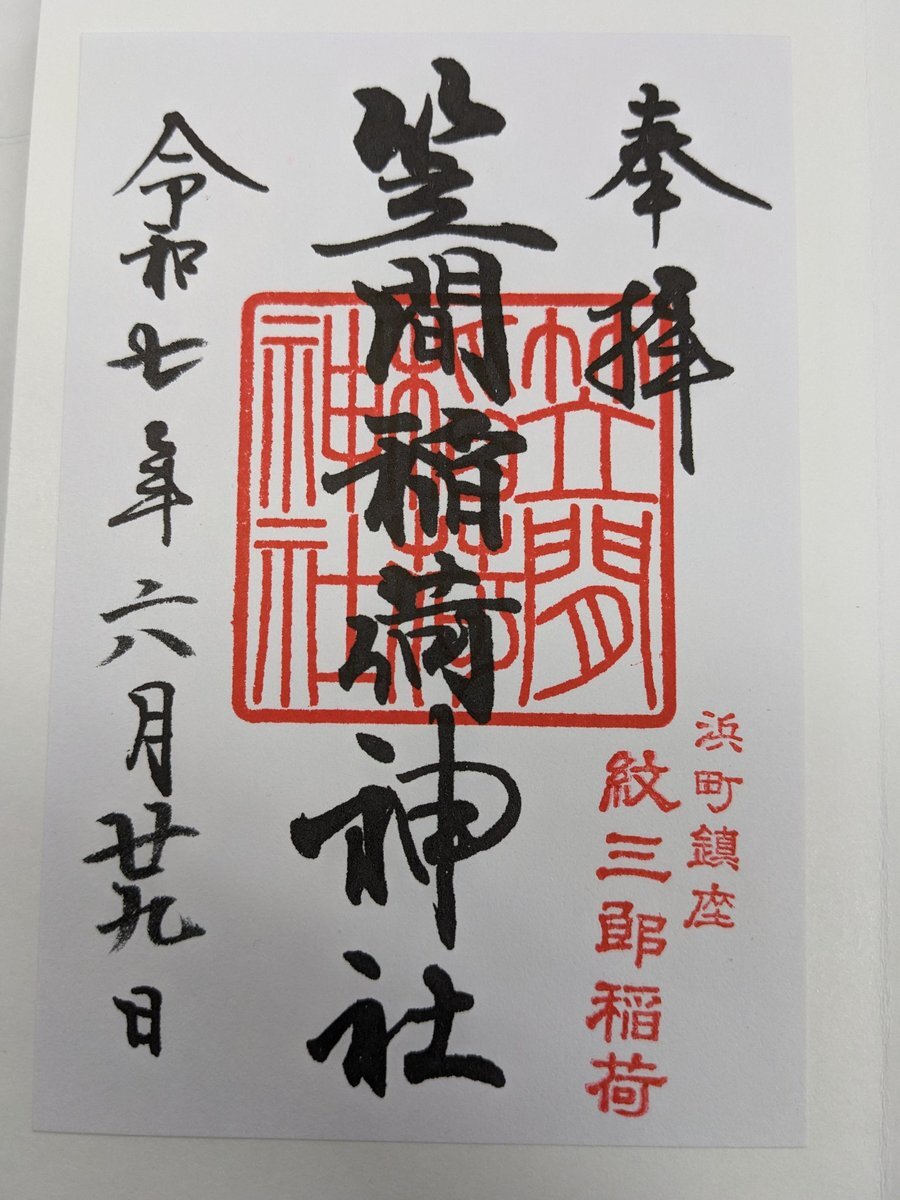 奉拝
浜町鎮座
紋三郎稲荷
笠間稲荷神社
笠間
稲荷
神社
令和七年六月廿九日